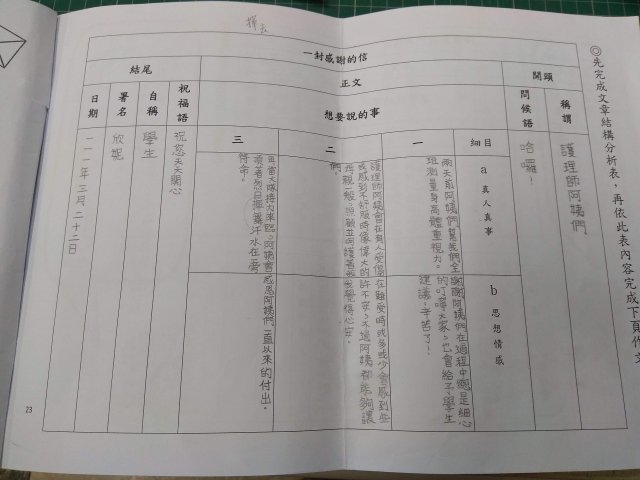 ◎先完成文章結構分析表，再依此表內容完成下頁作文
擇去
一封感謝的信
開頭
正文
結尾
稱謂
問候語
想要說的事
祝福語
自稱
署名
日期
護理師阿姨們
哈囉！
細目
一
二
三
a 真人真事
兩天前阿姨們幫我們全
班測量身高體重視力。
護理師阿姨會在有人受傷
或感到不舒服時像偉大的
母親般。照顧並呵護著我
們
每當大隊接力來臨，阿姨會
頂著烈日揮舞汗水在旁
待命。
b 思想情感
謝謝阿姨們在過程中總是細心
的叮嚀大家，也會給予學生
建議，辛苦了！
在難受時或多或少會感到些
許不安，不過阿姨都能夠讓
我覺得心安。
感恩阿姨們一直以來的付出。
祝您天天開心
學生
欣妮
一一一年三月二十二日
23